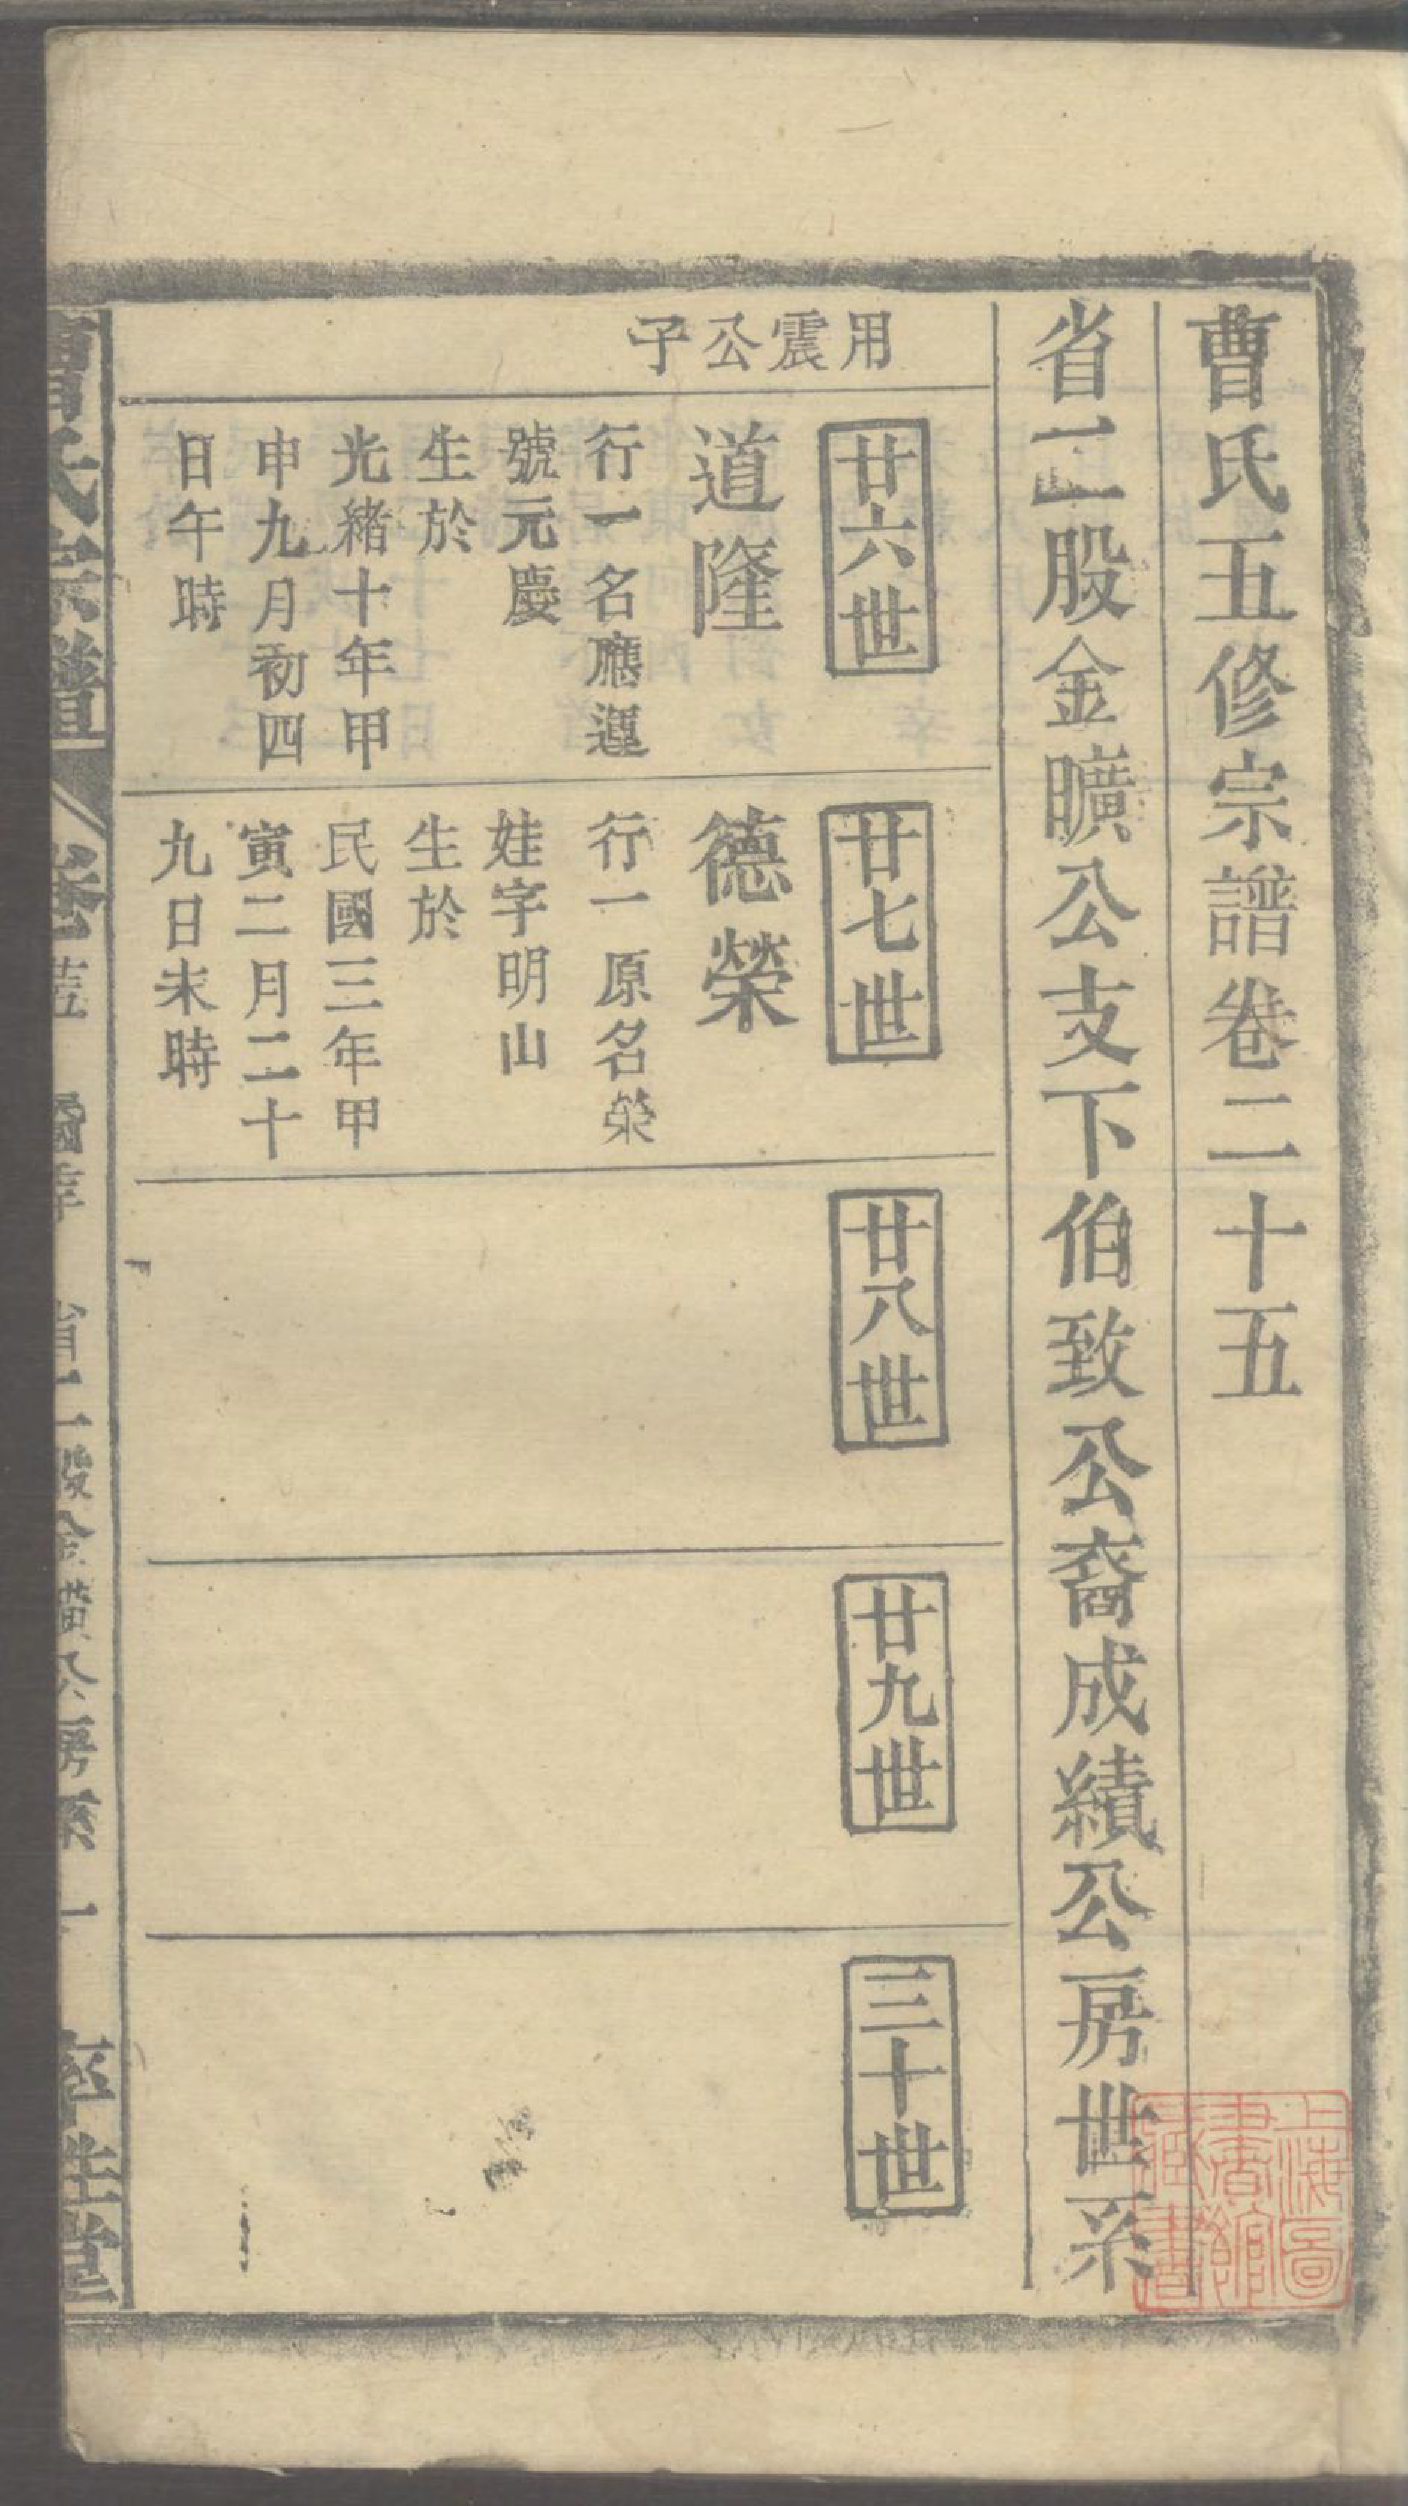 曹氏五修宗譜卷二十五
省一二股金曠公支下伯致公裔成績公房世系
用震公子
廿六世
道隆
行一名應運
號元慶
生於
光緒十年甲
申九月初四
日午時
廿七世
德榮
行一原名榮
娃字明山
生於
民國三年甲
寅二月二十
九日未時
廿八世
廿九世
三十世
曹氏宗譜
卷
省
股金
公房系 一
率性堂
上海圖
書館
藏書